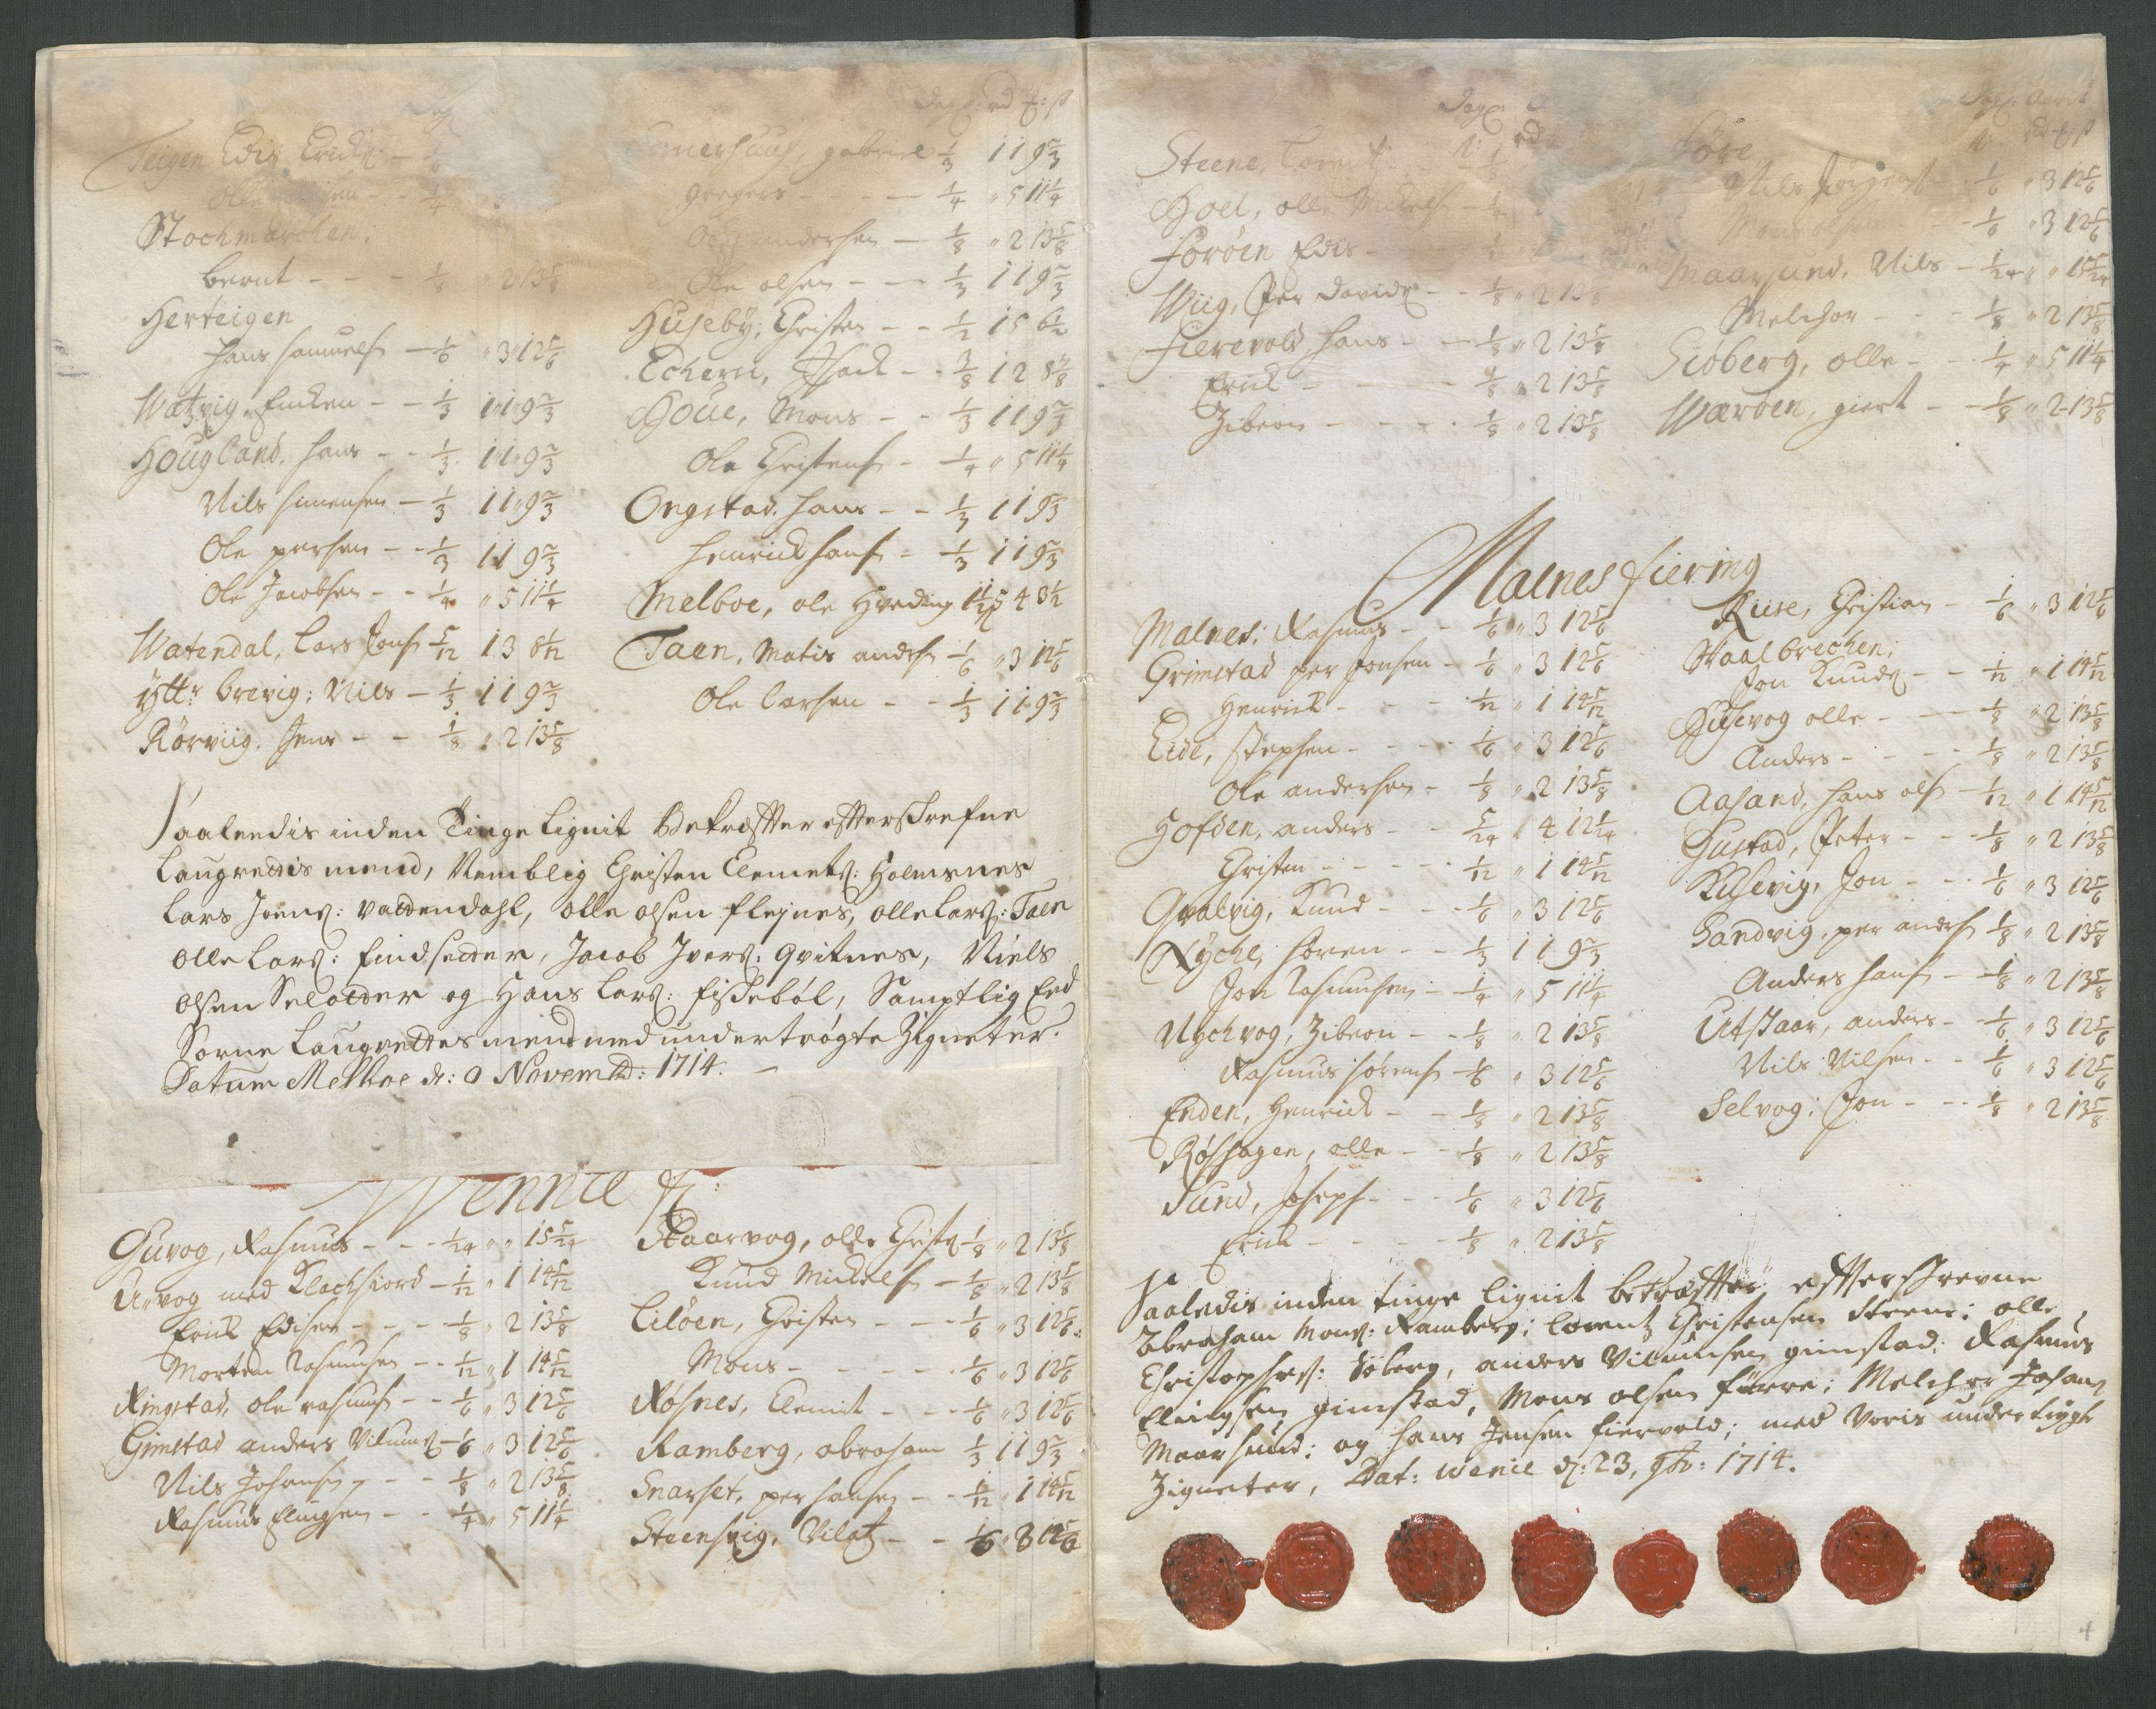 Teigen Edis Erichs: –
Olle – – 1/4
Stochmarchen:
bernt – – – 1/8 " 2 13 5/8
Herteigen
Hans Samuels: – 1/6 " 3 12 5/6
Watzvig. Encken – – 1/3 1 1 9 2/3
Hougland. Hans – – 1/3 1 1 9 2/3
Nils Simensen – 1/3 1 1 9 2/3
Ole persen – – 1/3 1 1 9 2/3
Ole Jacobsen – – 1/4 " 5 11 1/4
Watendal, Lars Jons: 5/12 1 3 8 1/12
Ytt: brevig: Nils – 1/3 1 1 9 2/3
Rörviig. Jens – – 1/8 " 2 13 5/8
Dag: rd £: ß
gabriel 1/3 1 1 9 2/3
gregers – – – – 1/4 " 5 11 1/4
andersen – 1/8 " 2 13 5/8
Ole olsen – – 1/3 1 1 9 2/3
Huseby; Christen – – 1/2 1 5 6 1/2
Eckeren, Isack – – 3/8 1 2 8 7/8
Houe, Mons – – 1/3 1 1 9 2/3
Ole Christens: – 1/4 " 5 11 1/4
Ongstad. Hans – – 1/3 1 1 9 2/3
Henrick Hans: – 1/3 1 1 9 2/3
Melboe, ole Hveding 1 1/2 5 4 3 1/2
Taen, Matis anders: 1/6 " 3 12 5/6
Ole Larsen – – 1/3 1 1 9 2/3
Saaleedis inden Tinge Lignit Bekrefter efterskrefne
Laugrettis mend, Nemblig Christen Clemets: Holmsnes
Lars Joens: Vattendahl, Olle olsen flejnes, Olle Lars: Taen
Olle Lars: findsetter, Jacob Ivers: Qvitnes, Niels
olsen Selotter og Hans Lars: fiskeböl, Samptlig Eed
Sorne Laugrettes mend med undertrögte Zigneter.
Datum Melboe d: 9 Novembr: 1714. –
Wennie f:
Guvog, Rasmus – – – 1/24 " " 15 5/24
Urvog med Klackfiord – 1/12 " 1 14 5/12
Erick Edisen – – – 1/8 " 2 13 5/8
Morten Rasmusen – – 1/12 " 1 14 5/12
Ringstad, ole rasmus: – – 1/6 " 3 12 5/6
Gimstad anders Vilums: – 1/6 " 3 12 5/6
Nils Johansen – – 1/8 " 2 13 5/8
Rasmus Elingsen – – 1/4 " 5 11 1/4
Skaarvog, olle Christ: 1/8 " 2 13 5/8
Knud Mickels: – 1/8 " 2 13 5/8
Lilöen, Christen – – – 1/6 " 3 12 5/6
Mons – – – – – 1/6 " 3 12 5/6
Røsnes, Clemit – – – 1/6 " 3 12 5/6
Ramberg, abraham 1/3 1 1 9 2/3
Snarset, per Hansen – – 1/12 " 1 14 5/12
Steensvig, Vilatz – – 1/6 " 3 12 5/6
Steene, Lorentz
Hoel, olle Mickels:
Foröen Edis –
Wiig, Per Davids: – – 1/8 " 2 13 5/8
Fierevold, Hans – – 1/8 " 2 13 5/8
Erick – – – – 1/8 " 2 13 5/8
Zibeon – – – – 1/8 " 2 13 5/8
Före
Nils Jörgens: – 1/6 " 3 12 5/6
Mons olsen – 1/6 " 3 12 5/6
Maarsund. Nils – 1/24 " " 15 5/24
Melchor – – – 1/8 " 2 13 5/8
Siöberg, olle – – – 1/4 " 5 11 1/4
Waröen, giert – – 1/8 " 2 13 5/8
Malnes fiering
Malnes: Rasmus – – 1/6 " 3 12 5/6
Grimstad per Jonsen – 1/6 " 3 12 5/6
Henrick – – – 1/12 " 1 14 5/12
Eide, Stephen – – – 1/6 " 3 12 5/6
Ole andersen – 1/8 " 2 13 5/8
Hofden, anders – – 5/24 " 4 12 1/24
Christen – – – – 1/12 " 1 14 5/12
Qvalvig, Knud – – – 1/6 " 3 12 5/6
Nyche, Sören – – 1/3 1 1 9 2/3
Jon Rasmusen – 1/4 " 5 11 1/4
Nychvog, Zibeon – – 1/8 " 2 13 5/8
Rasmus Sörens: 1/6 " 3 12 5/6
Enden, Henrick – – 1/8 " 2 13 5/8
Røshagen, olle – – 1/8 " 2 13 5/8
Sund, Joseph – – – 1/6 " 3 12 5/6
Erick – – – – 1/8 " 2 13 5/8
Riise, Christian – 1/6 " 3 12 5/6
Staalbrechen:
Jon Knuds: – – 1/12 " 1 14 5/12
Husevog olle – – – 1/8 " 2 13 5/8
Anders – – – – 1/8 " 2 13 5/8
Aasand, Hans ols: – 1/12 " 1 14 5/12
Gustad, Peter – – – 1/8 " 2 13 5/8
Kusevig, Jon – – – 1/6 " 3 12 5/6
Sandvig, per anders: 1/8 " 2 13 5/8
Anders Hans: – 1/8 " 2 13 5/8
Utskaar, anders – – 1/6 " 3 12 5/6
Nils Nilsen – – 1/6 " 3 12 5/6
Selvog; Jon – – – 1/8 " 2 13 5/8
Saaledis inden tinge lignit bekrefter efterskrevne
Abraham Mons: Ramberg; Lorentz Christensen Steene; olle
Christophers: Söberg, anders Vilumsen gimstad: Rasmus
Elingsen gimstad, Mons olsen fürre; Melchor Johans:
Maarsund; og Hans Jensen fierevold; med Voris undertrygte
Zigneter, Dat: Wenie d: 23, 9br: 1714.
4